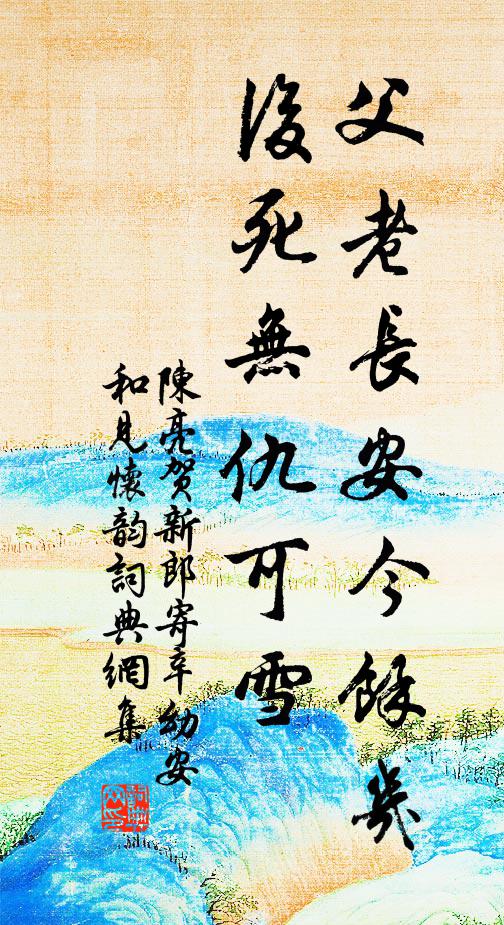 父老長安今餘幾
後死無仇可雪
陳亮賀新郎寄辛幼安
和見懷韵詞典網集